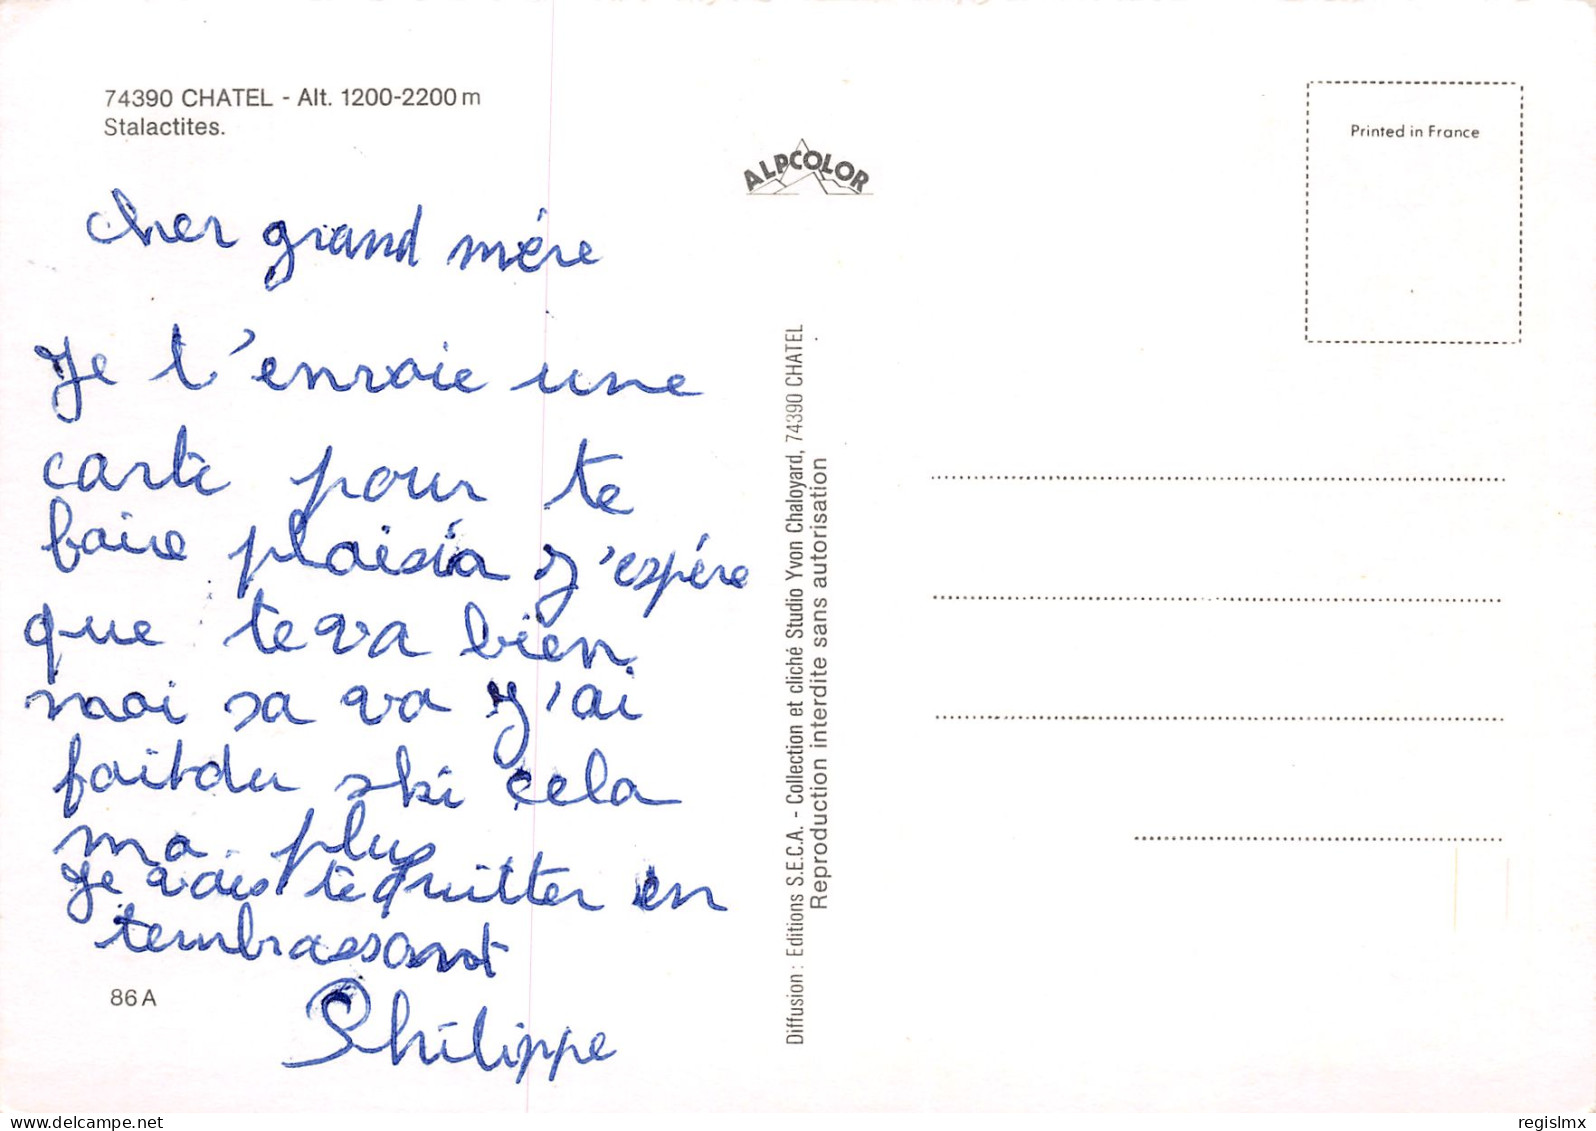 74390 CHATEL - Alt. 1200-2200 m
Stalactites.
cher grand mére
Je t'envoie une
carte pour te
faire plaisia j'espére
que teva bien
moi sa va j'ai
faitdu ski cela
ma plus
Je vais tequitter en
tembrassant
Philippe
86 A
ALPCOLOR
Diffusion : Editions S.E.C.A. - Collection et cliché Studio Yvon Chaloyard, 74390 CHATEL
Reproduction interdite sans autorisation
Printed in France
delcampe.net
regislmx